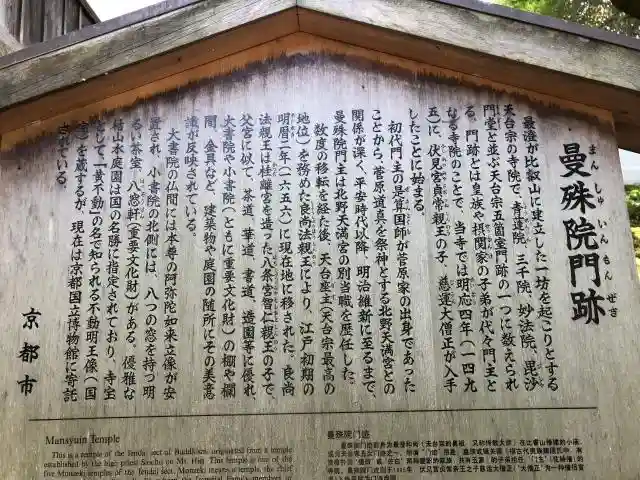 曼殊院門跡
まんしゅいんもんぜき
最澄が比叡山に建立した一坊を起こりとする
天台宗の寺院で、青蓮院、三千院、妙法院、毘沙
門堂と並ぶ天台宗五箇室門跡の一つに数えられ
る。門跡とは皇族や摂関家の子弟が代々門主と
なる寺院のことで、当寺では明応四年(一四九
五)に、伏見宮貞常親王の子、慈運大僧正が入手
したことに始まる。
初代門主の是算国師が菅原家の出身であった
ことから、菅原道真を祭神とする北野天満宮との
関係が深く、平安時代以降、明治維新に至るまで、
曼殊院門主は北野天満宮の別当職を歴任した。
数度の移転を経た後、天台座主(天台宗最高の
地位)を務めた良尚法親王により、江戸初期の
明暦二年(一六五六)に現在地に移された。良尚
法親王は桂離宮を造った八条宮智仁親王の子で、
父宮に似て、茶道、華道、書道、造園等に優れ、
大書院や小書院(ともに重要文化財)の棚や欄
間、金具など、建築物や庭園の随所にその美意
識が反映されている。
大書院の仏間には本尊の阿弥陀如来立像が安
置され、小書院の北側には、八つの窓を持つ明
るい茶室、八窓軒(重要文化財)がある。優雅な
枯山水庭園は国の名勝に指定されており、寺宝
として「黄不動」の名で知られる不動明王像(国
宝)を蔵するが、現在は京都国立博物館に寄託
されている。
京都市
Mansyuin Temple
This is a temple of the Tendai sect of Buddhism, originated from a temple
established by the high priest Saicho on Mt. Hiei. This temple is one of the
five Monzeki temples of the Tendai sect. Monzeki means a temple, the chief
曼殊院门迹